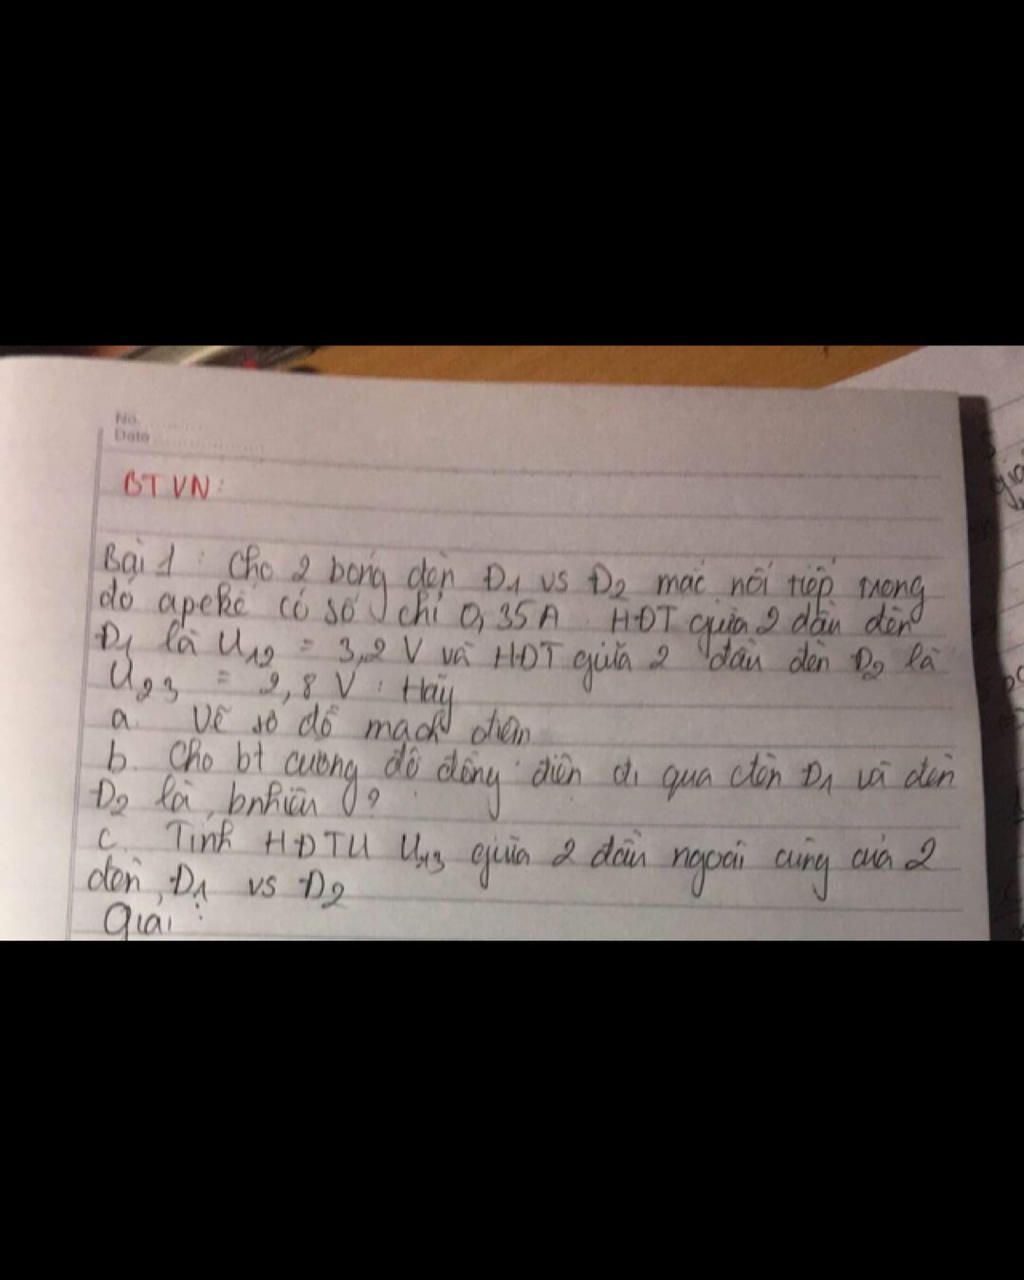 No.
Date
BTVN:
Bài 1: Cho 2 bóng đèn Đ1 vs Đ2 mắc nối tiếp trong
đó apekế có số chỉ 0,35A. HĐT giữa 2 đầu đèn
Đ1 là U12 = 3,2 V và HĐT giữa 2 đầu đèn Đ2 là
U23 = 2,8 V. Hãy
a. Vẽ sơ đồ mạch điện
b. Cho bt cường độ dòng điện đi qua đèn Đ1 và đèn
Đ2 là bnhiêu?
c. Tính HĐTU U13 giữa 2 đầu ngoài cùng của 2
đèn Đ1 vs Đ2
Giải: